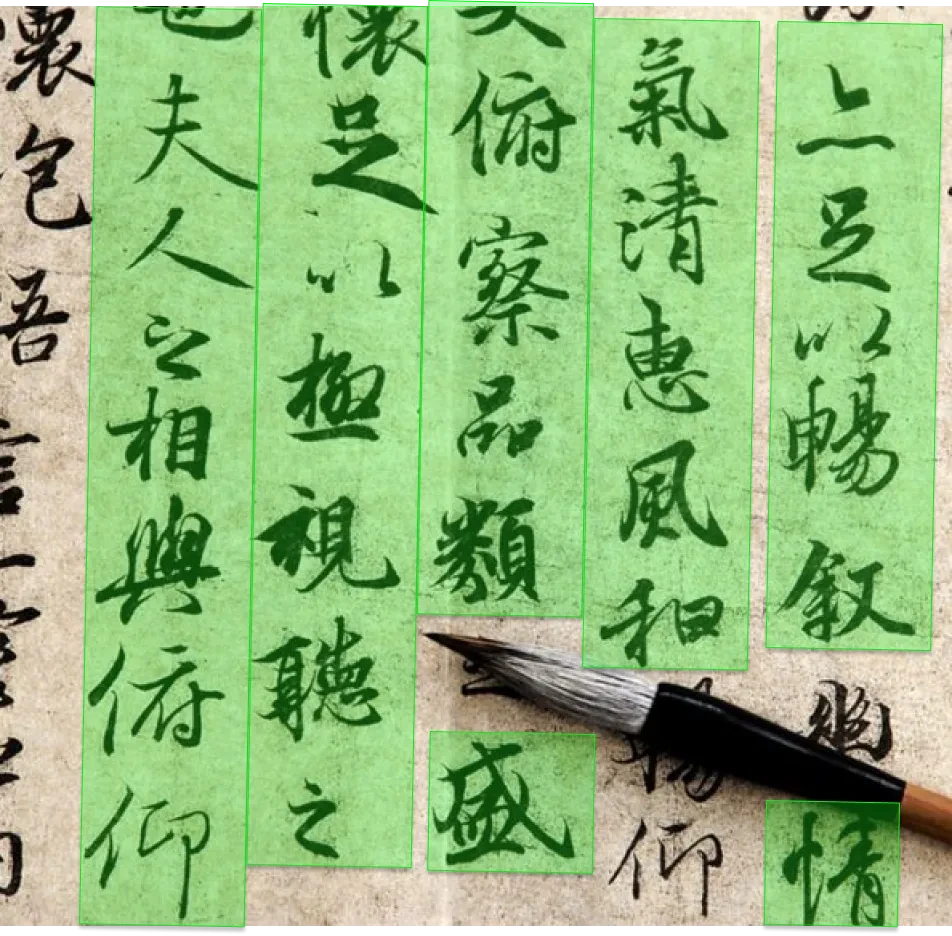 亦足以暢敘幽情
氣清惠風和暢仰
大俯察品類之盛
懷足以極視聽之
也夫人之相與俯仰
懷抱悟言一室之內